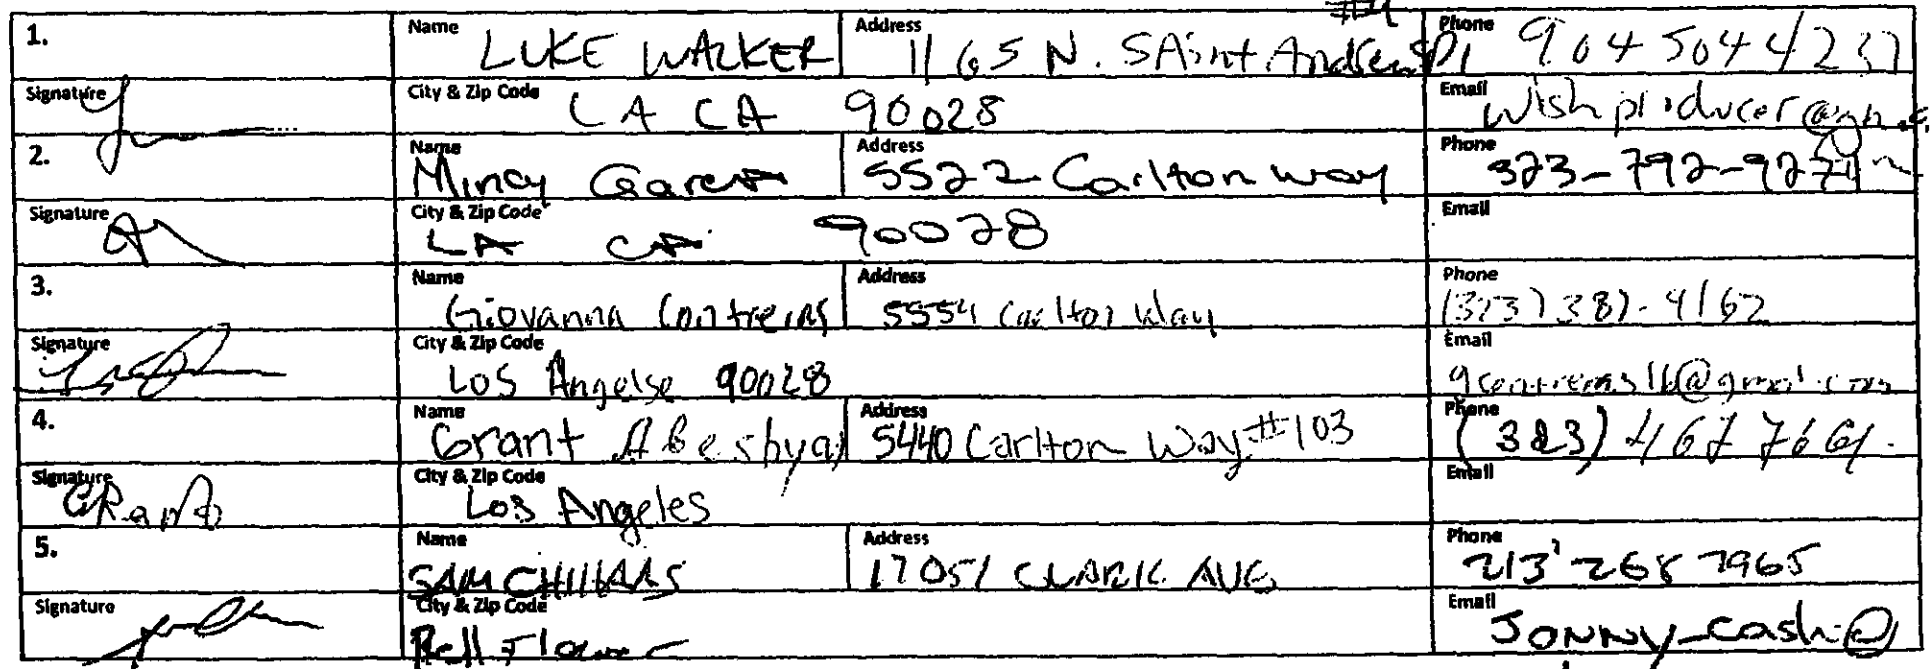 1. Name LUKE WALKER Address 1165 N. SAint Andrews Pl Phone 904 504 4237
Signature City & Zip Code LA CA 90028 Email
2. Name Mincy Garcia Address 5522 Carlton way Phone 323-792-927
Signature City & Zip Code LA CA 90028 Email
3. Name Giovanna Contreras Address 5554 Carlton Way Phone (323) 387-4162
Signature City & Zip Code Los Angelse 90028 Email
4. Name Grant Address 5440 Carlton Way #103 Phone (323) 467 7661
Signature City & Zip Code Los Angeles Email
5. Name SAM Address 17051 CLARK AVE Phone 213 268 7965
Signature City & Zip Code Bell Flower Email JONNY-Cash@